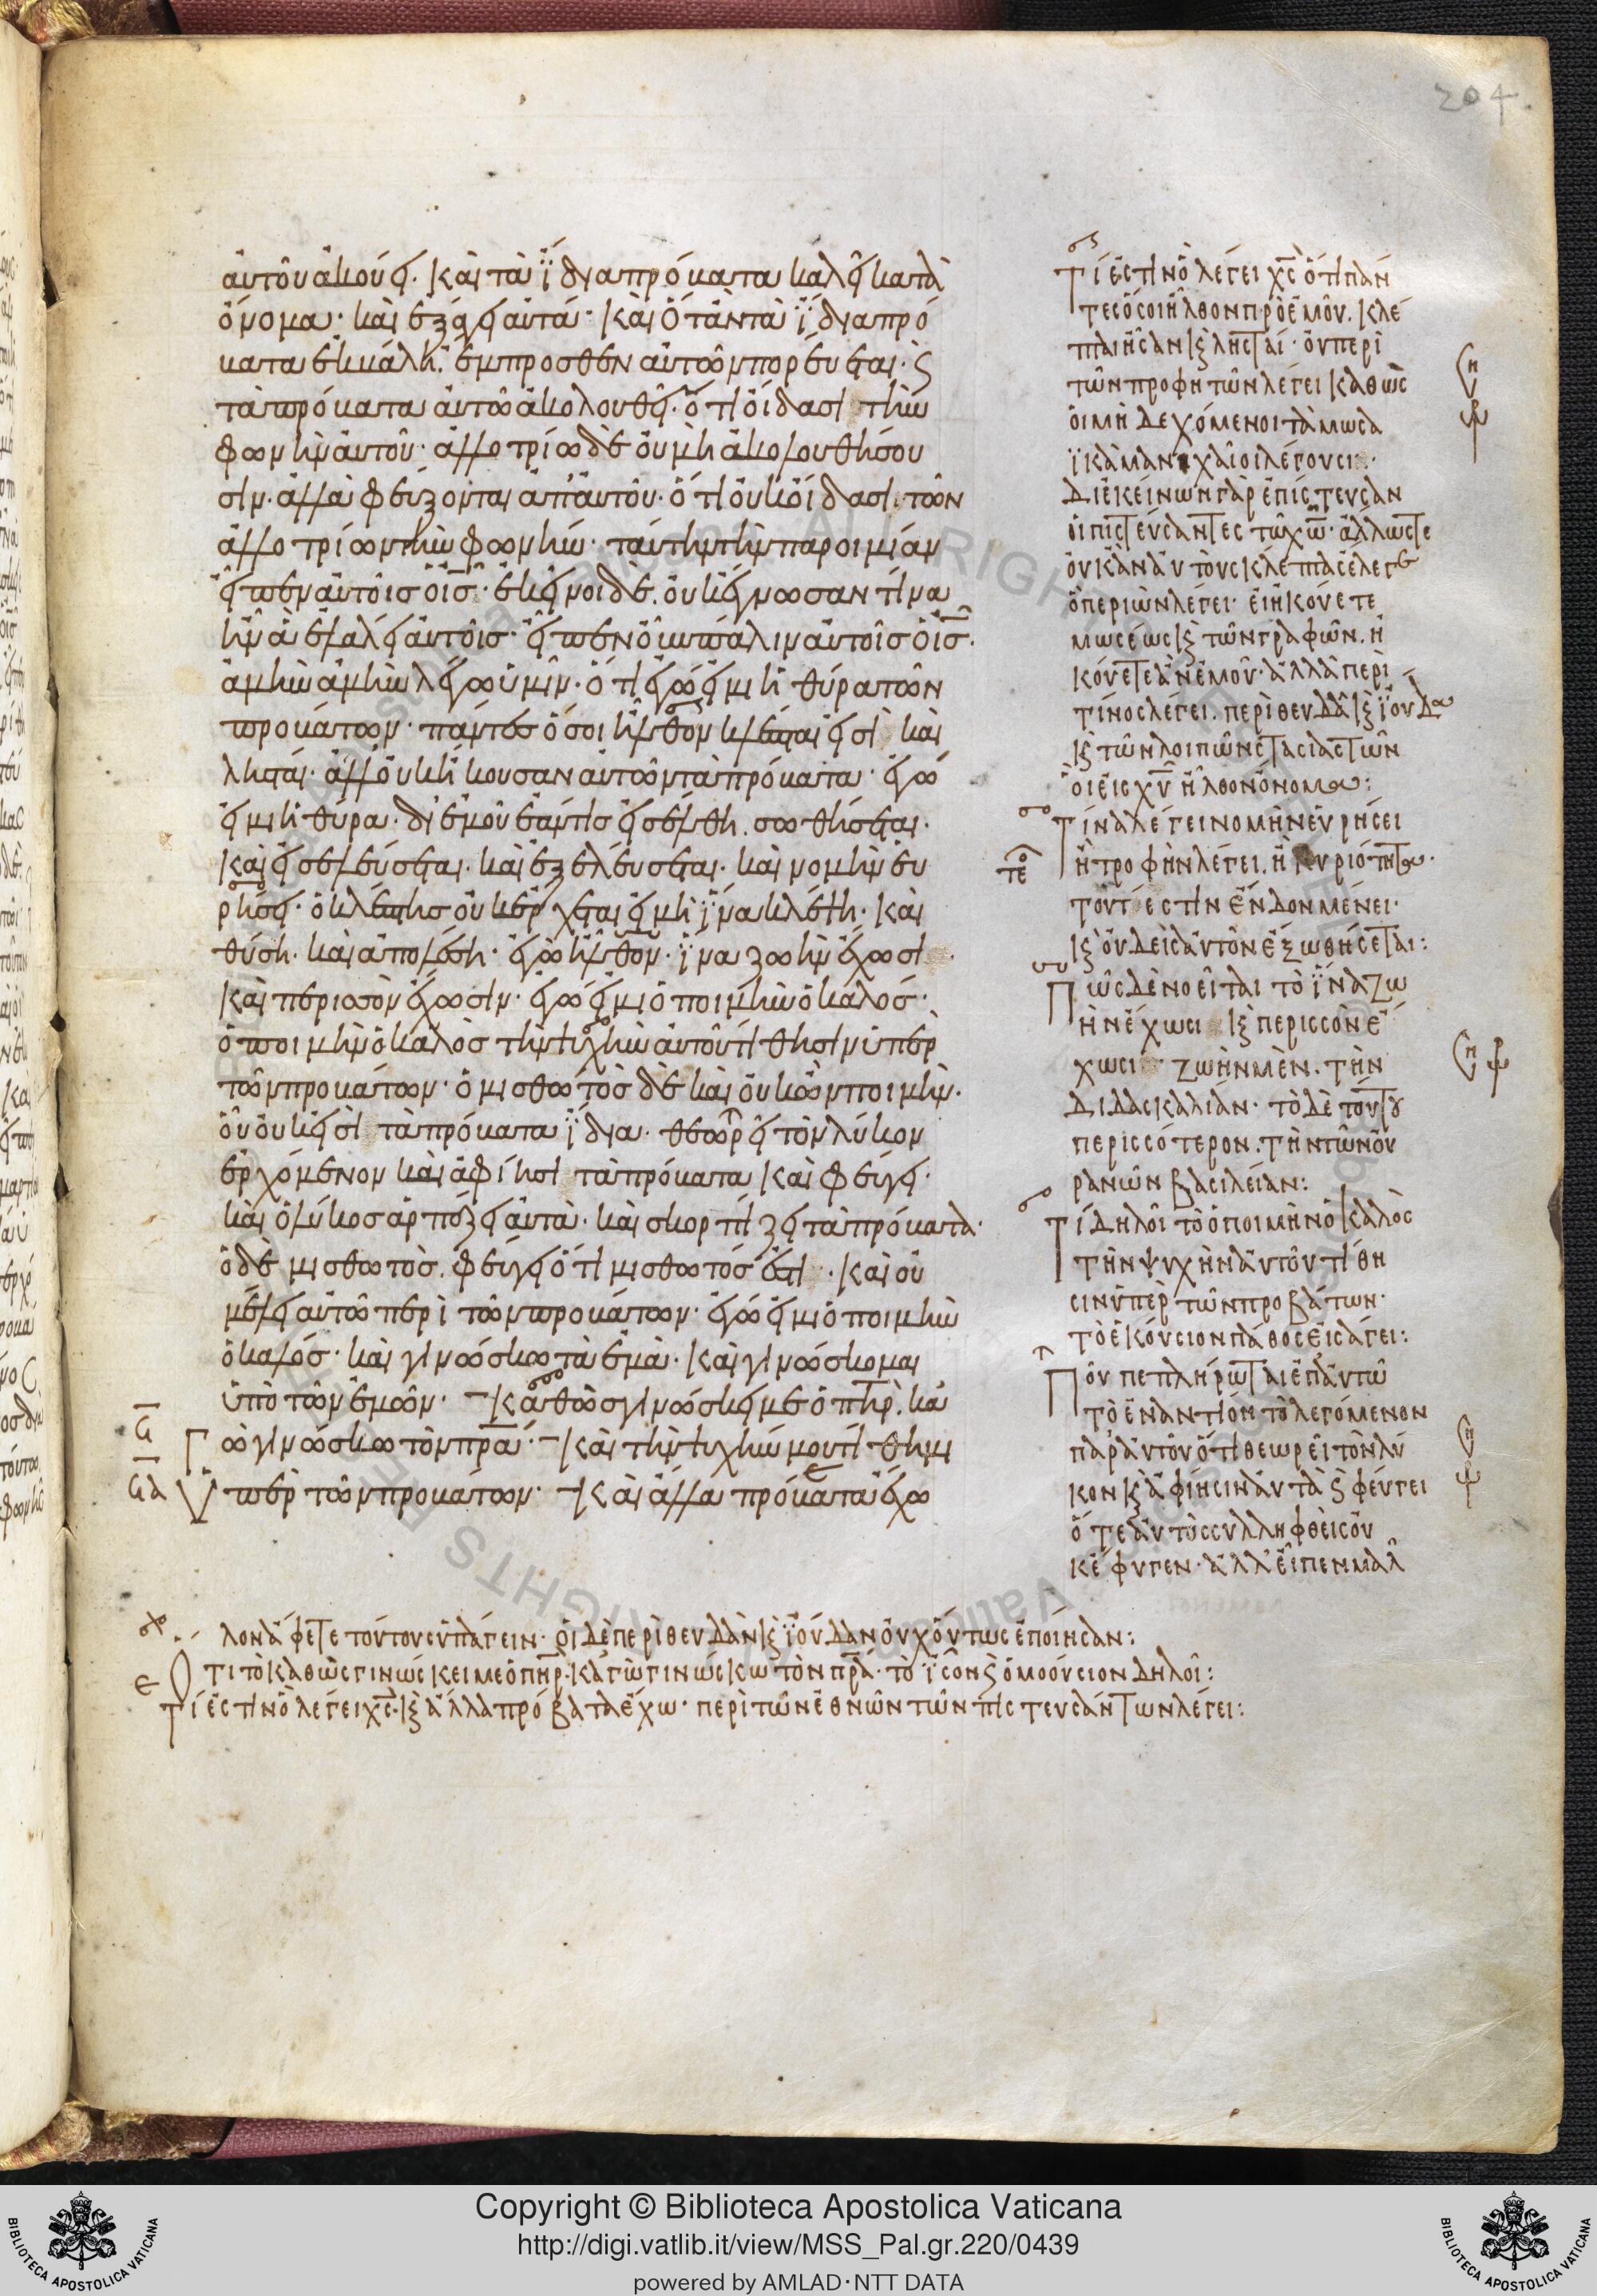 204
αὐτοῦ ἀκούει. καὶ τὰ ἴδια πρόβατα καλεῖ κατὰ
ὄνομα. καὶ ἐξάγει αὐτά. καὶ ὅταν τὰ ἴδια πρό
βατα ἐκβάλη. ἔμπροσθεν αὐτῶν πορεύεται. ϛ
τὰ πρόβατα αὐτῶ ἀκολουθεῖ. ὅτι οἴδασι τὴν
φωνὴν αὐτοῦ. ἀλλοτρίω δὲ οὐ μὴ ἀκολουθήσου
σιν. ἀλλὰ φεύξονται ἀπ' αὐτοῦ. ὅτι οὐκ οἴδασι τῶν
ἀλλοτρίων τὴν φωνήν. ταύτην τὴν παροιμίαν
εἶπεν αὐτοῖς ὁ ις. ἐκεῖνοι δὲ. οὐκ ἔγνωσαν τίνα
ἦν ἃ ἐλάλει αὐτοῖς. εἶπεν οὖν πάλιν αὐτοῖς ὁ ις.
ἀμὴν ἀμὴν λέγω ὑμῖν. ὅτι ἐγώ εἰμι ἡ θύρα τῶν
προβάτων. πάντες ὅσοι ἦλθον κλέπται εἰσὶ καὶ
λησταί. ἀλλ' οὐκ ἤκουσαν αὐτῶν τὰ πρόβατα. ἐγώ
εἰμι ἡ θύρα. δι' ἐμοῦ ἐάν τις εἰσέλθη. σωθήσεται.
καὶ εἰσελεύσεται. καὶ ἐξελεύσεται. καὶ νομὴν εὑ
ρήσει. ὁ κλέπτης οὐκ ἔρχεται εἰ μὴ ἵνα κλέψη. καὶ
θύση. καὶ ἀπολέση. ἐγὼ ἦλθον. ἵνα ζωὴν ἔχωσι
καὶ περισσὸν ἔχωσιν. ἐγώ εἰμι ὁ ποιμὴν ὁ καλός.
ὁ ποιμὴν ὁ καλὸς τὴν ψυχὴν αὐτοῦ τίθησιν ὑπὲρ
τῶν προβάτων. ὁ μισθωτὸς δὲ καὶ οὐκ ὢν ποιμήν.
οὗ οὐκ εἰσὶ τὰ πρόβατα ἴδια. θεωρεῖ τὸν λύκον
ἐρχόμενον καὶ ἀφίησι τὰ πρόβατα καὶ φεύγει.
καὶ ὁ λύκος ἁρπάζει αὐτὰ. καὶ σκορπίζει τὰ πρόβατα.
ὁ δὲ μισθωτὸς. φεύγει ὅτι μισθωτός ἐστι. καὶ οὐ
μέλει αὐτῶ περὶ τῶν προβάτων. ἐγώ εἰμι ὁ ποιμὴν
ὁ καλός. καὶ γινώσκω τὰ ἐμὰ. καὶ γινώσκομαι
ὑπὸ τῶν ἐμῶν. καθὼς γινώσκει με ὁ πηρ. κα
γὼ γινώσκω τὸν πρα. καὶ τὴν ψυχήν μου τίθημι
ὑπὲρ τῶν προβάτων. καὶ ἄλλα πρόβατα ἔχω
Τί ἐστιν ὃ λέγει χς ὅτι πάν
τες ὅσοι ἦλθον πρὸ ἐμοῦ. κλέ
πται ἦσαν κ λησταί. οὐ περὶ
τῶν προφητῶν λέγει καθὼς
οἱ μὴ δεχόμενοι τὰ μωσα
ϊκὰ μανιχαῖοι λέγουσι.
Δι' ἐκείνων γὰρ ἐπίστευσαν
οἱ πιστεύσαντες τῶ χω. ἄλλωστε
οὐκ ἂν αὐτοὺς κλέπτας ἔλεγε
ὃ περὶ ὧν λέγει. εἰ ἠκούετε
μωσέως κ τῶν γραφῶν. ἠ
κούετε ἂν ἐμοῦ. ἀλλὰ περὶ
τίνος λέγει. περὶ θευδᾶ κ ϊούδα
κ τῶν λοιπῶν στασιαστῶν
οἳ εἰς χν ἦλθον ὄνομα:
Τίνα λέγει νομὴν εὑρήσει
ἢ τροφὴν λέγει. ἢ κυριότητα.
τουτέστιν ἔνδον μένει.
κ οὐδεὶς αὐτὸν ἐξωθήσεται:
Πῶς δὲ νοεῖται τὸ ἵνα ζω
ὴν ἔχωσι κ περισσὸν ἔ
χωσι ζωὴν μὲν. τὴν
διδασκαλίαν. τὸ δὲ τούτου
περισσότερον. τὴν τῶν οὐ
ρανῶν βασιλείαν:
Τί δηλοῖ τὸ ὁ ποιμὴν ὁ καλὸς
τὴν ψυχὴν αὐτοῦ τίθη
σιν ὑπὲρ τῶν προβάτων.
τὸ ἑκούσιον πάθος εἰσάγει:
Ποῦ πεπλήρωται ἐπ' αὐτῶ
τὸ ἐναντίον τὸ λεγόμενον
παρ' αὐτοῦ ὅτι θεωρεῖ τὸν λύ
κον κ ἀφίησιν αὐτὰ ϛ φεύγει
ὅτε αὐτὸς συλληφθεὶς οὐ
κ ἔφυγεν. ἀλλ' εἶπεν μαλ
λον ἄφετε τούτους ὑπάγειν. οἱ δὲ περὶ θευδὰν κ ϊούδαν οὐχ οὕτως ἐποίησαν:
Ὅτι τὸ καθὼς γινώσκει με ὁ πηρ. κἀγὼ γινώσκω τὸν πρα. τὸ ἴσον ϛ ὁμοούσιον δηλοῖ:
Τί ἐστιν ὃ λέγει χς. κ ἄλλα πρόβατα ἔχω. περὶ τῶν ἐθνῶν τῶν πιστευσάντων λέγει:
Copyright © Biblioteca Apostolica Vaticana
http://digi.vatlib.it/view/MSS_Pal.gr.220/0439
powered by AMLAD·NTT DATA